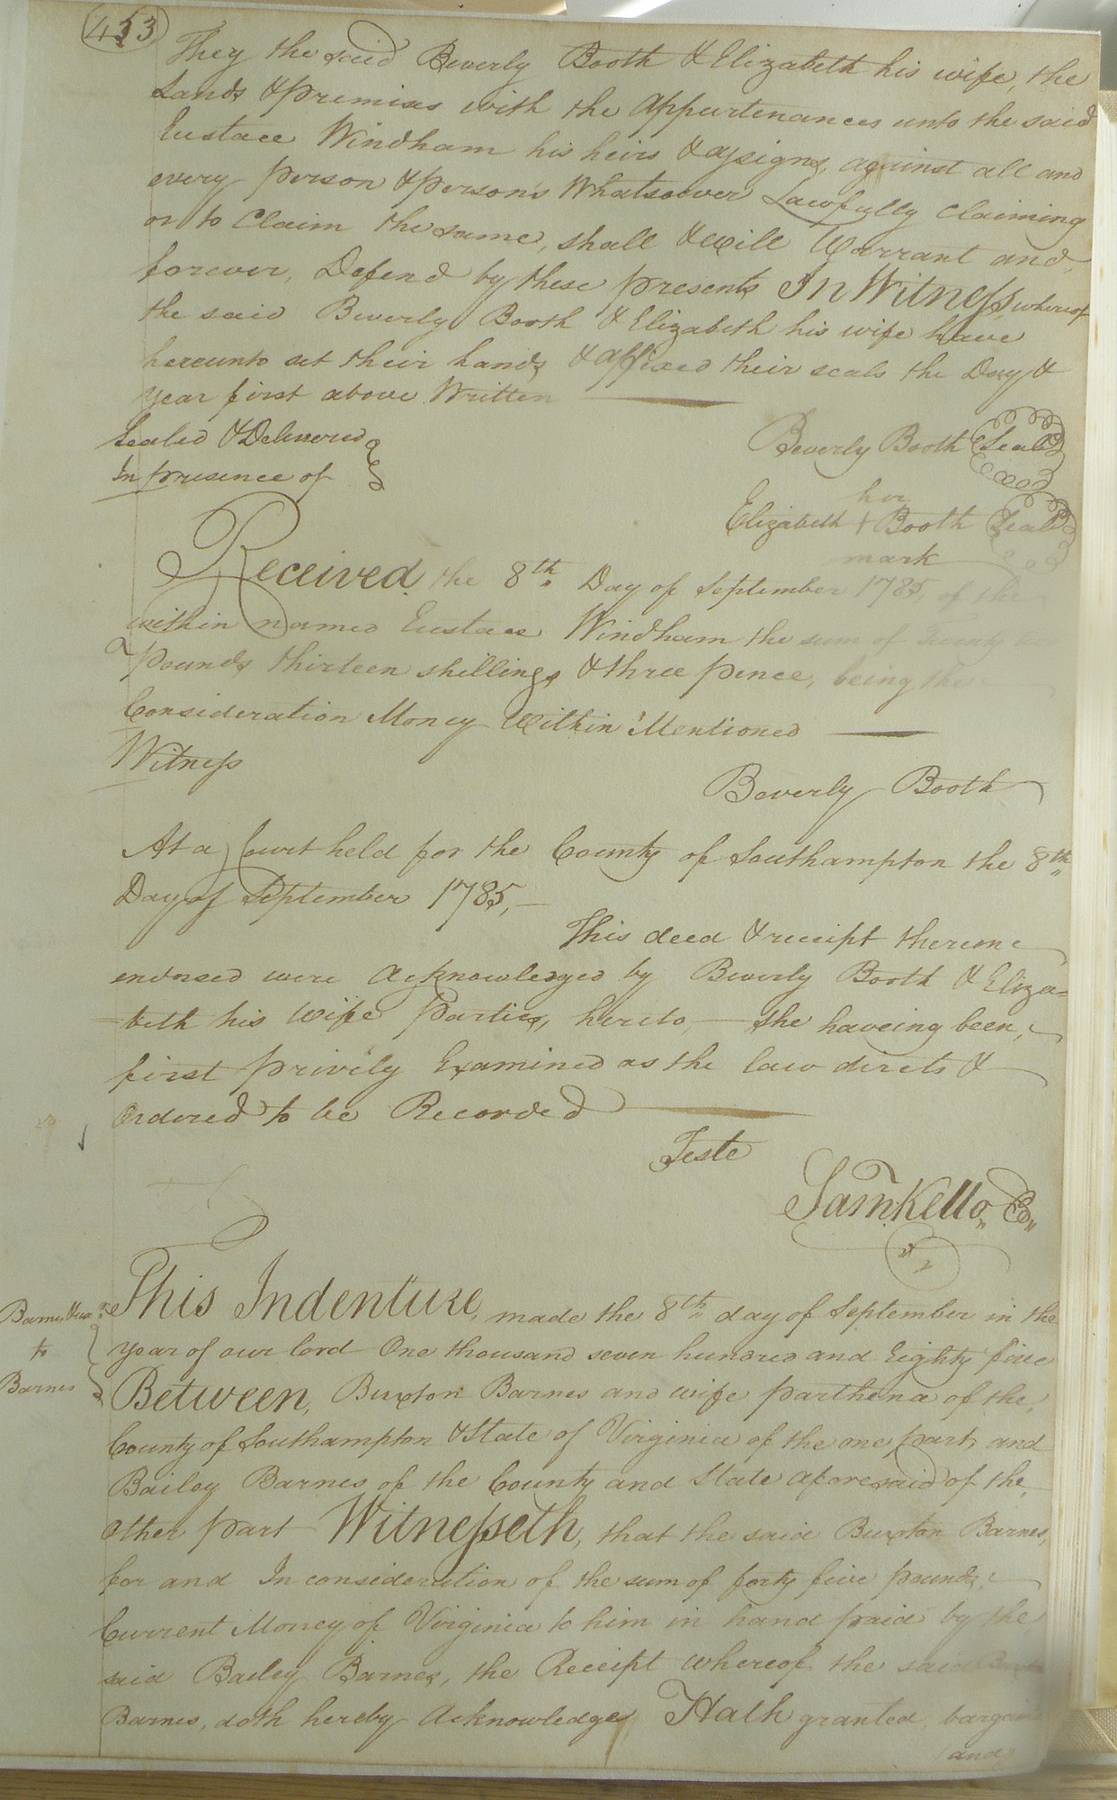 453
They the said Beverly Booth & Elizabeth his wife, the
Lands & premises with the Appurtenances unto the said
Eustace Windham his heirs & assigns, against all and
every person & persons Whatsoever Lawfully Claiming
or to Claim the same, shall & will Warrant and,
forever, Defend by these presents In Witness, whereof
the said Beverly Booth & Elizabeth his wife have
hereunto set their hands & affixed their seals the Day &
year first above Written
Sealed & Delivered
In presence of
Beverly Booth Seal
her
Elizabeth + Booth Seal
mark
Received the 8th Day of September 1785, of the
within named Eustace Windham the sum of Twenty
Pounds thirteen shillings & three pence, being the
Consideration Money Within Mentioned
Witness
Beverly Booth
At a Court held for the County of Southampton the 8th
Day of September 1785,
This deed & receipt thereon
endorsed were Acknowledged by Beverly Booth & Eliza=
beth his Wife Parties, hereto, she haveing been,
first privily Examined as the law directs &
Ordered to be Recorded
Teste
Saml. Kello,
Barnes &ux
to
Barnes
This Indenture, made the 8th day of September in the
year of our lord One thousand seven hundred and Eighty five
Between, Buxton Barnes and wife parthena of the,
County of Southampton & State of Virginia of the one part, and
Bailey Barnes of the County and State aforesaid of the
Other part Witnesseth, that the said Buxton Barnes,
for and In consideration of the sum of forty five pounds,
Current Money of Virginia to him in hand paid by the
said Bailey Barnes, the Receipt whereof the said Buxton
Barnes, doth hereby Acknowledge, Hath granted, bargain
and